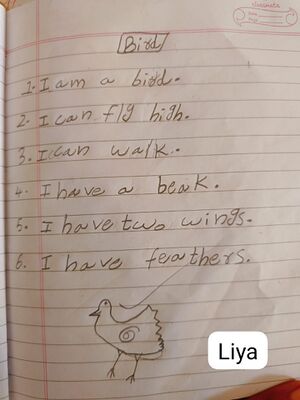 Bird
1. I am a bird.
2. I can fly high.
3. I can walk.
4. I have a beak.
5. I have two wings.
6. I have feathers.
Liya